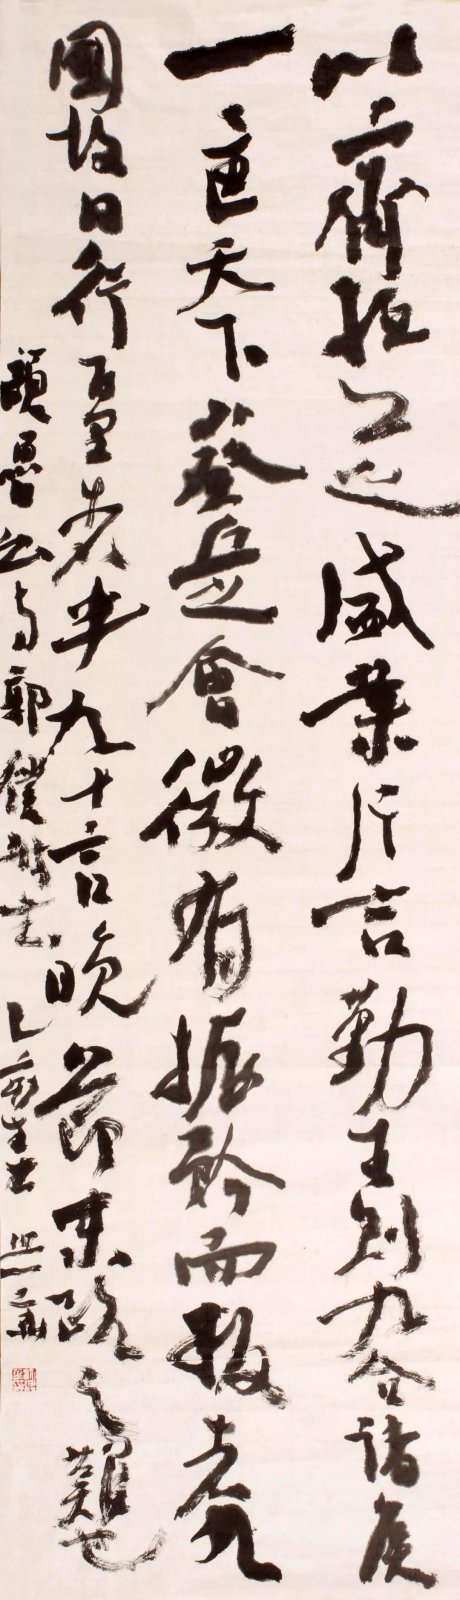 以齊桓公之盛業片言勤王則九合諸侯
一匡天下葵丘之會微有振矜而叛者九
國故曰行百里者半九十言晚節末路之難也
顏魯公与郭僕射書 乙亥